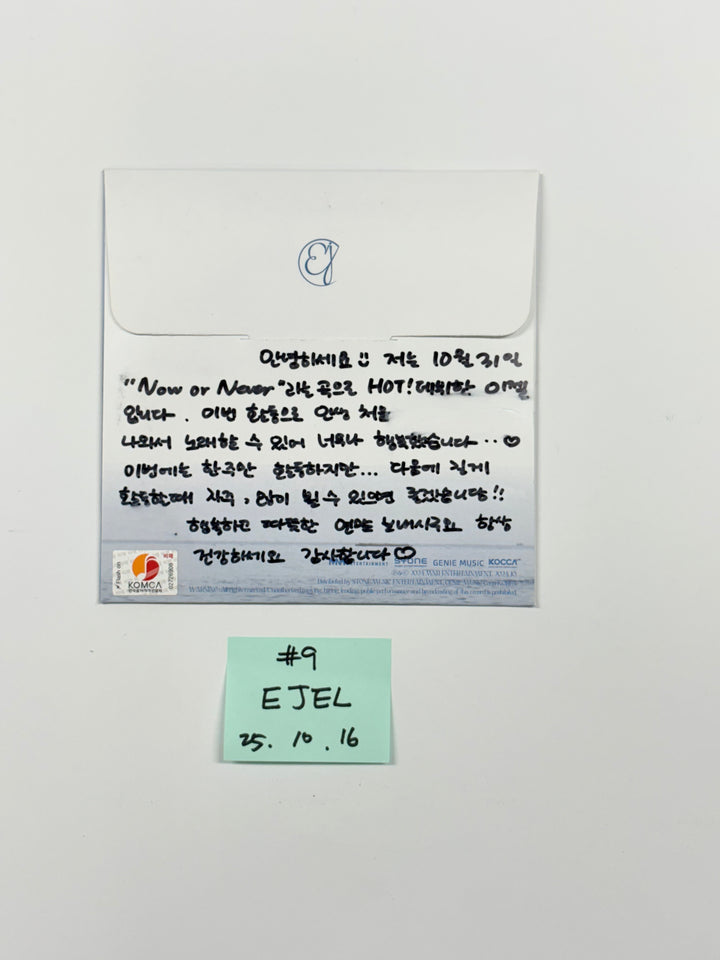 EJ
안녕하세요 :) 저는 10월 31일
"Now or Never"라는 곡으로 HOT! 데뷔한 이젤
입니다. 이번 활동으로 인생 처음
나와서 노래할 수 있어 너무나 행복했습니다..♡
이번에는 한곡만 활동하지만... 다음에 길게
활동할때 자주, 많이 뵐 수 있으면 좋겠습니다!!
행복하고 따뜻한 연말 보내시구요 항상
건강하세요 감사합니다♡
ENTERTAINMENT STONE GENIE MUSIC KOCCA
KOMCA
#9
EJEL
25. 10. 16